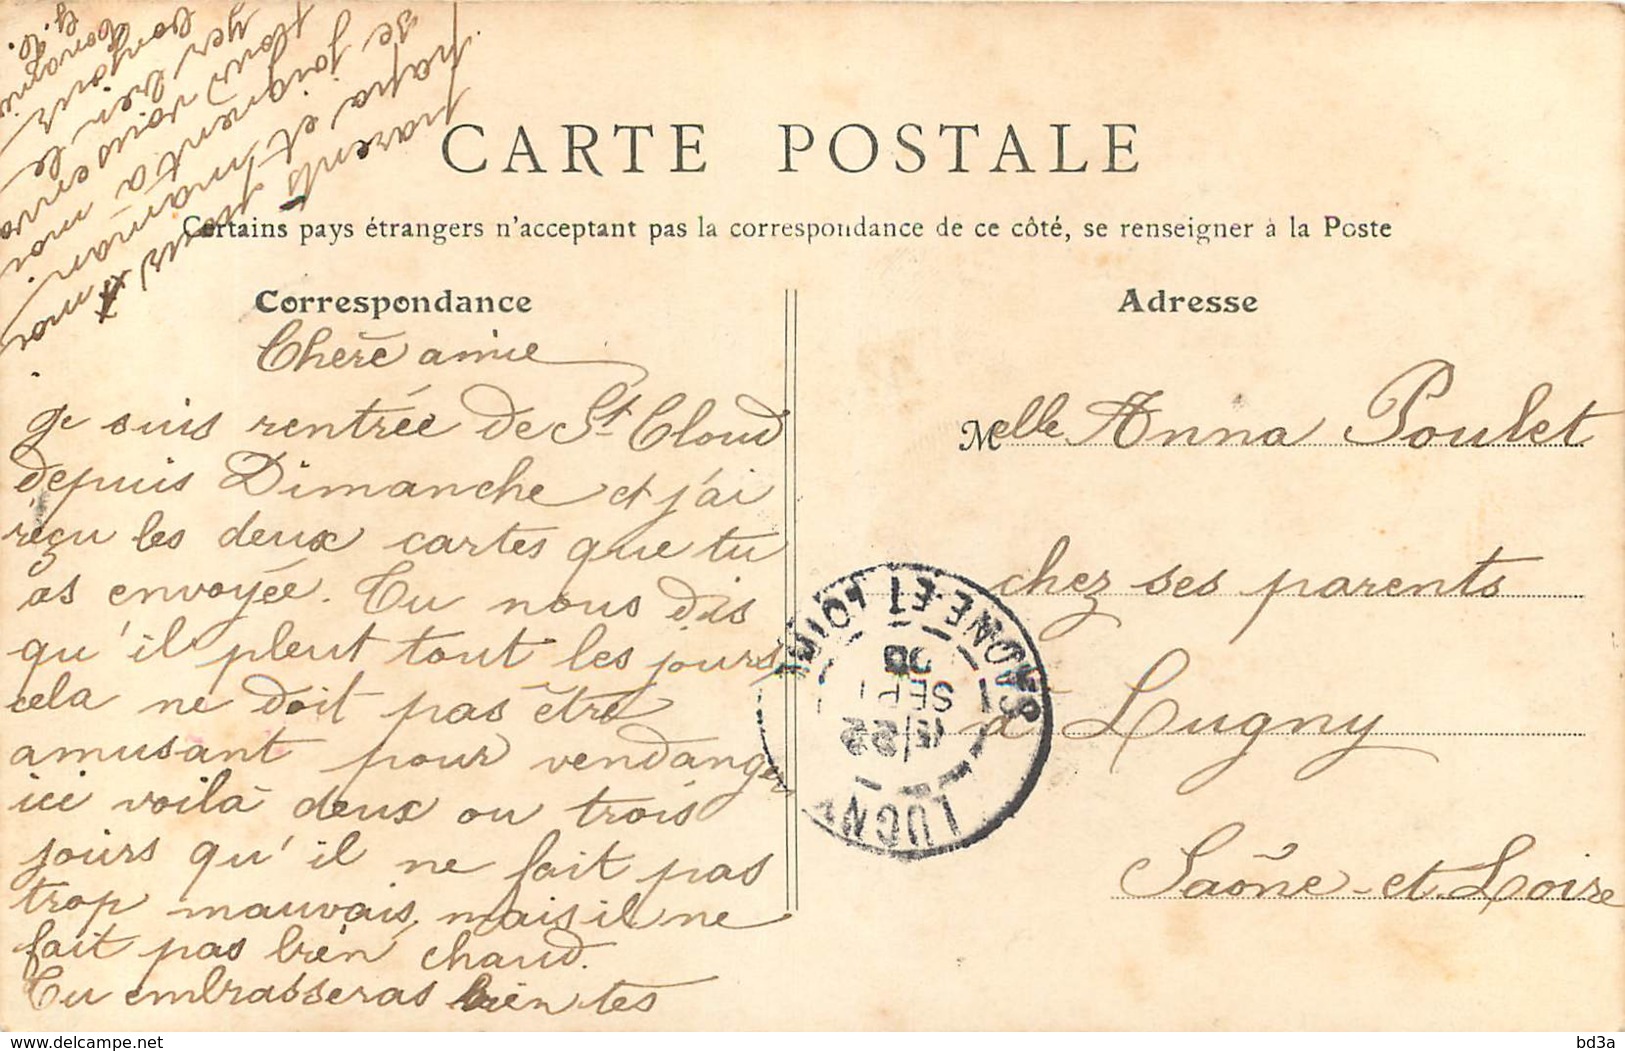 CARTE POSTALE
Certains pays étrangers n'acceptant pas la correspondance de ce côté, se renseigner à la Poste
Correspondance
Chère amie
Je suis rentrée de St Cloud
depuis Dimanche et j'ai
reçu les deux cartes que tu
as envoyée. Tu nous dis
qu'il pleut tout les jours
cela ne doit pas être
amusant pour vendanger
ici voilà deux ou trois
jours qu'il ne fait pas
trop mauvais, mais il ne
fait pas bien chaud.
Tu embrasseras bien tes
parents pour moi
papa et maman
se joignent à moi
pour vous envo
yer bien le
bonjour
Adresse
Melle Anna Poulet
chez ses parents
à Lugny
Saône-et-Loire
LUGNY
15/22
SEPT
08
SAONE-ET-LOIRE
www.delcampe.net
bd3a